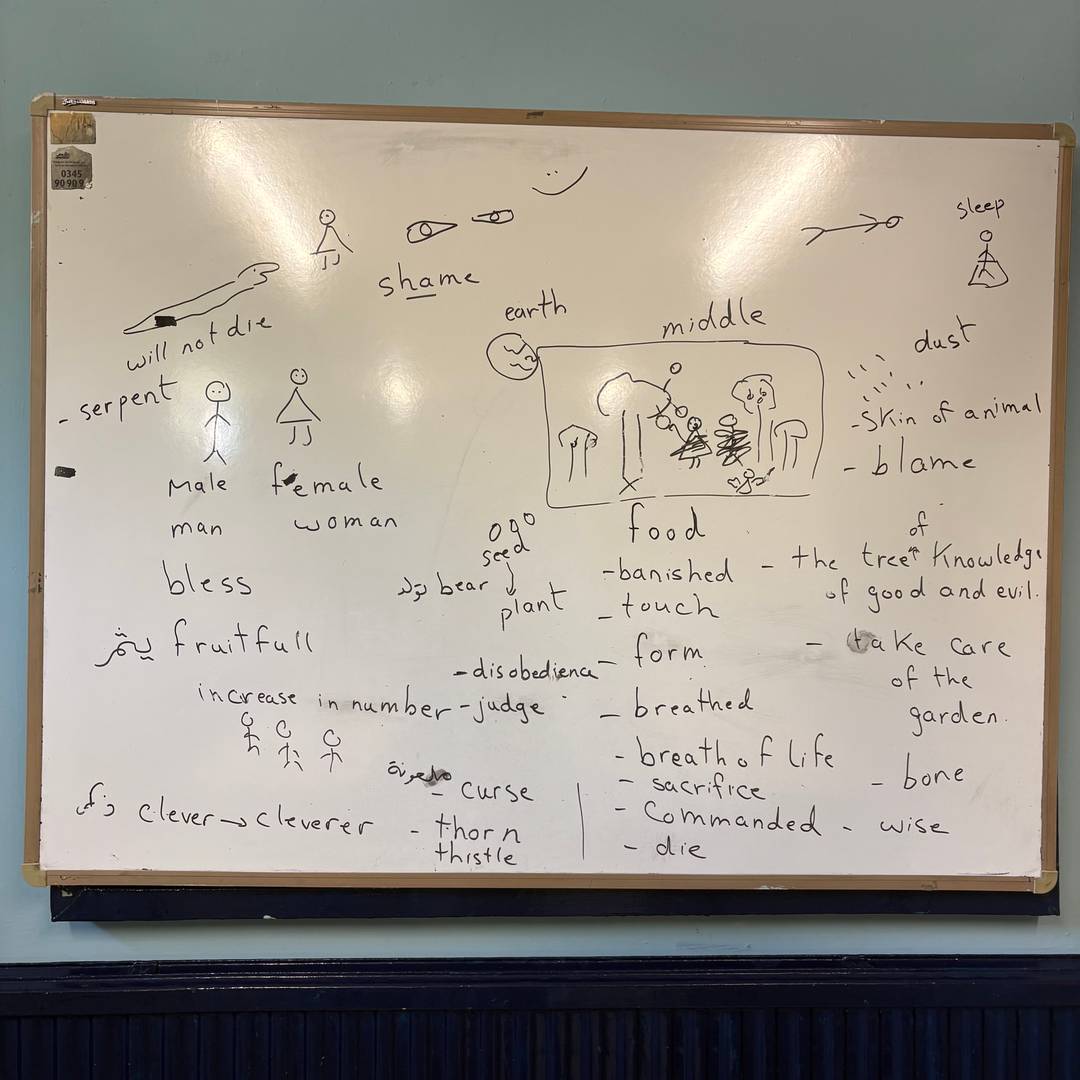 0345
90 90 9
sleep
shame
earth
middle
will not die
dust
- serpent
- skin of animal
- blame
Male female
man woman
seed
food
of
bless
يولد bear
plant
- banished
- the tree Knowledge
of good and evil.
- touch
يثمر fruitfull
- disobedienc
- form
- take care
of the
garden.
increase in number
- judge
- breathed
- breath of life
- bone
ملعونة
- curse
- sacrifice
ذكي clever → cleverer
- thorn
thistle
- Commanded
- wise
- die